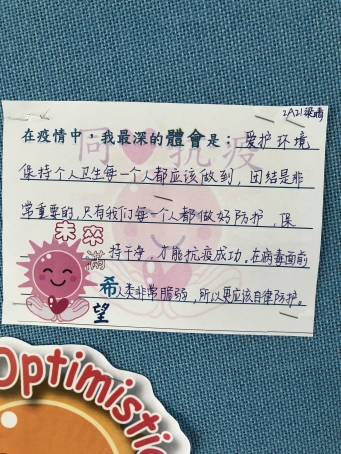 2A21梁晴
在疫情中，我最深的體會是：爱护环境，
保持个人卫生每一个人都应该做到，团结是非
常重要的，只有我们每一个人都做好防护，保
持干净，才能抗疫成功。在病毒面前
人类非常脆弱，所以更应该自律防护。
同 抗疫
未來
滿
希
望
Optimistic